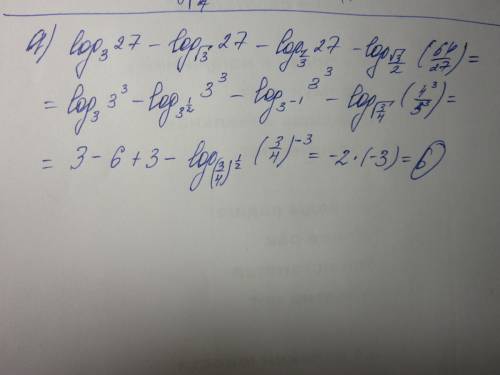 г) log₃27 − log_√3 27 − log_1/3 27 − log_√3/2 (64/27) =
= log₃3³ − log_3^1/2 3³ − log_3⁻¹ 3³ − log_√3/4 (4³/3³) =
= 3 − 6 + 3 − log_(3/4)^1/2 (3/4)⁻³ = −2·(−3) = 6